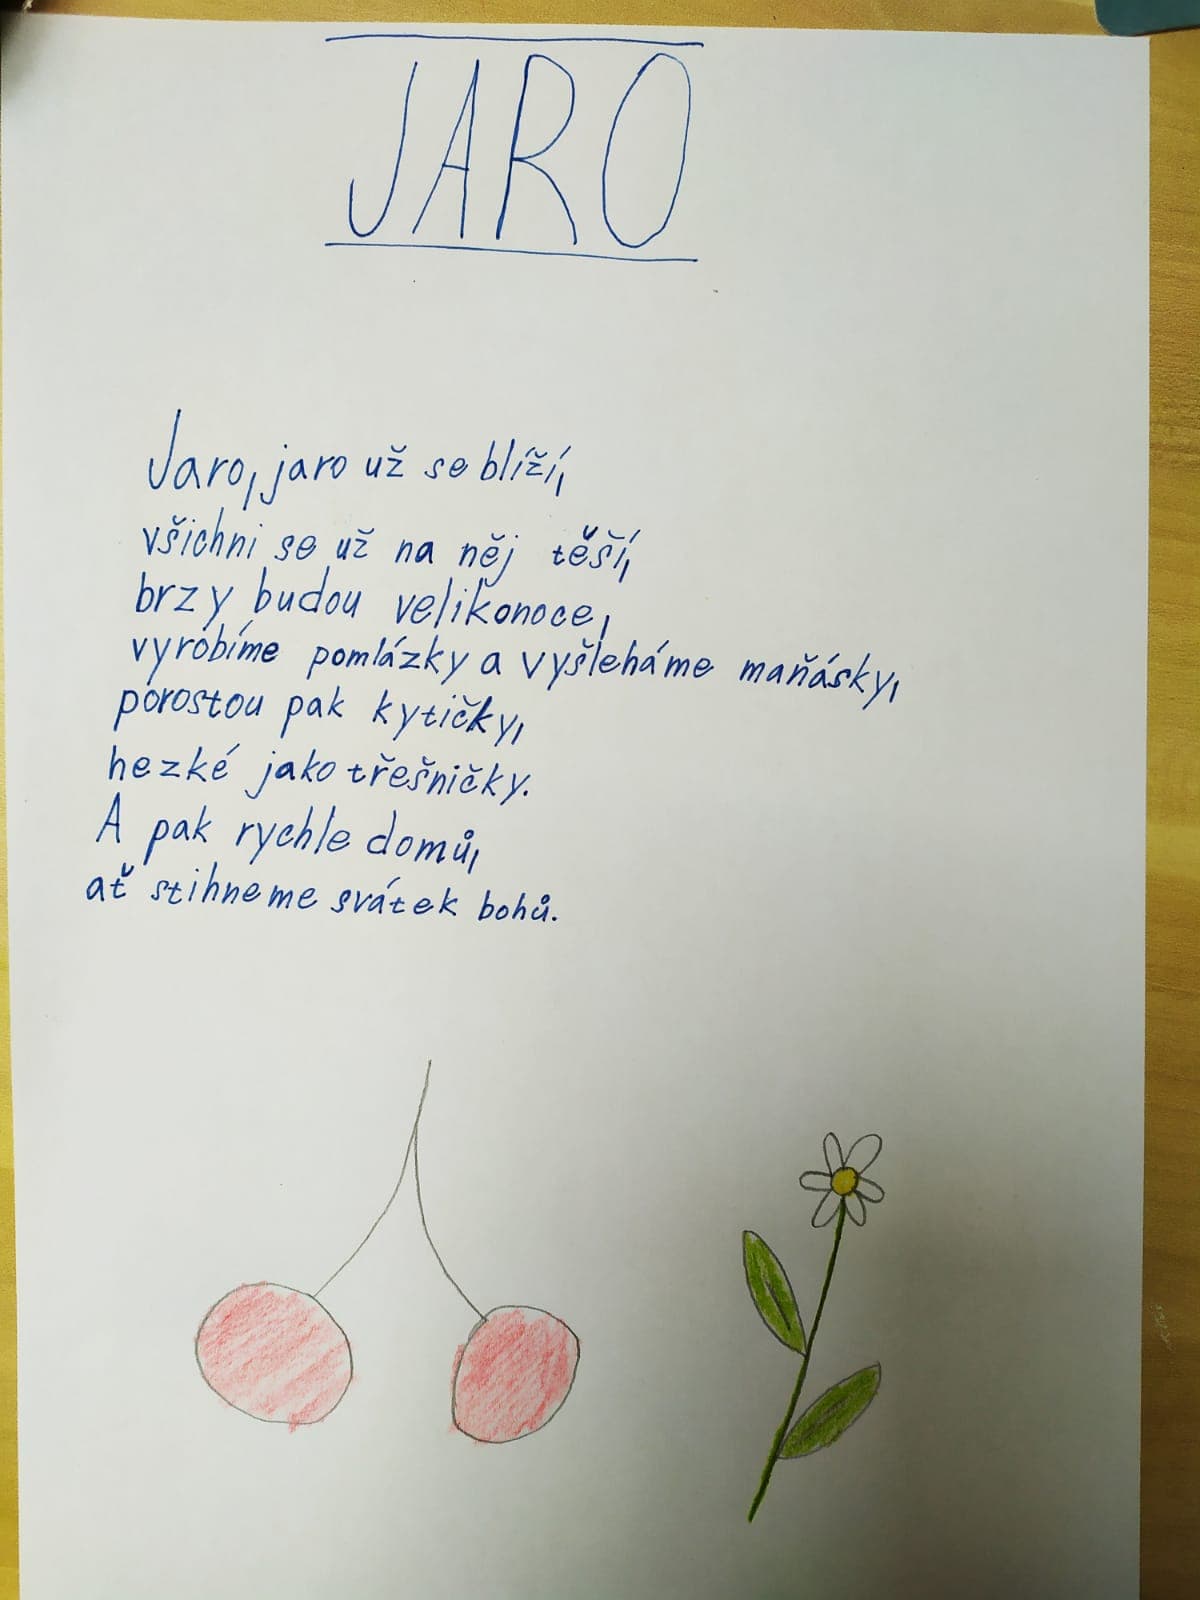 JARO
Jaro, jaro už se blíží,
všichni se už na něj těší,
brzy budou velikonoce,
vyrobíme pomlázky a vyšleháme maňásky,
porostou pak kytičky,
hezké jako třešničky.
A pak rychle domů,
ať stihneme svátek bohů.